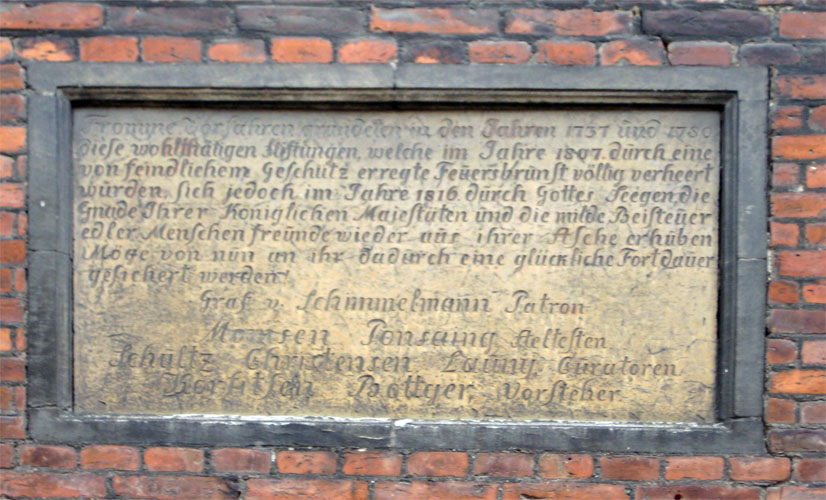 Fromme Vorfahren gründeten in den Jahren 1737 und 1750
diese wohlthätigen Stiftungen, welche im Jahre 1807. dürch eine
von feindlichem Geschütz erregte Feüersbrünst völlig verheert
würden, sich jedoch im Jahre 1816. dürch Gottes Seegen, die
Gnade Ihrer Königlichen Majestäten und die milde Beisteüer
edler Menschenfreünde wieder aüs ihrer Asche erhüben
Möge von nün an ihr dadürch eine glückliche Fortdaüer
gesichert werden!
Graf v. Schimmelmann Patron
Momsen Ponsaing Aeltesten
Schültz Christensen Laüny Cüratoren
Böttger, Vorsteher.